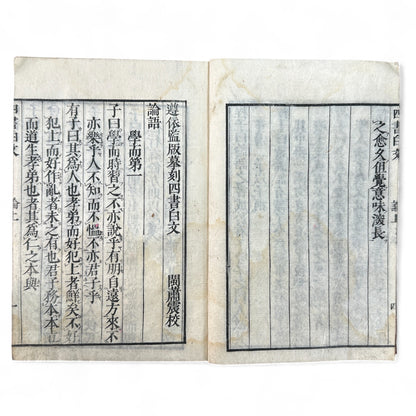 四書白文
之愈久但覺意味深長
遵依監版摹刻四書白文 閩蕭震校
論語
學而第一
子曰學而時習之不亦說乎有朋自遠方來不
亦樂乎人不知而不慍不亦君子乎
有子曰其爲人也孝弟而好犯上者鮮矣不好
犯上而好作亂者未之有也君子務本本立
而道生孝弟也者其爲仁之本與
四書白文 論上 一